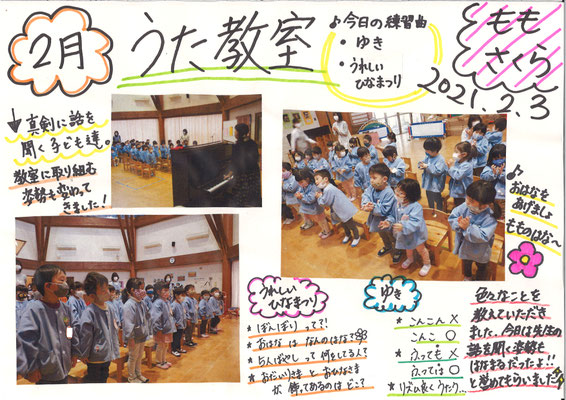 2月
うた教室
♪今日の練習曲
・ゆき
・うれしい
ひなまつり
もも
さくら
2021.2.3
真剣に話を
聞く子ども達。
教室に取り組む
姿勢も変わって
きました!
♪
おはなを
あげましょ
もものはな〜
うれしい
ひなまつり
★ぼんぼりって??
★おはなはなんのはな?
★5人ばやしって何をしてる人?
★おだいりさまとおひなさま
が飾ってあるのはどこ?
ゆき
★こんこん×
こんこ○
★ふっても×
ふっては○
★リズム良くうたう…
色々なことを
教えていただき
ました。今日は先生の
話を聞く姿勢も
はなまるだったよ!!
と誉めてもらいました